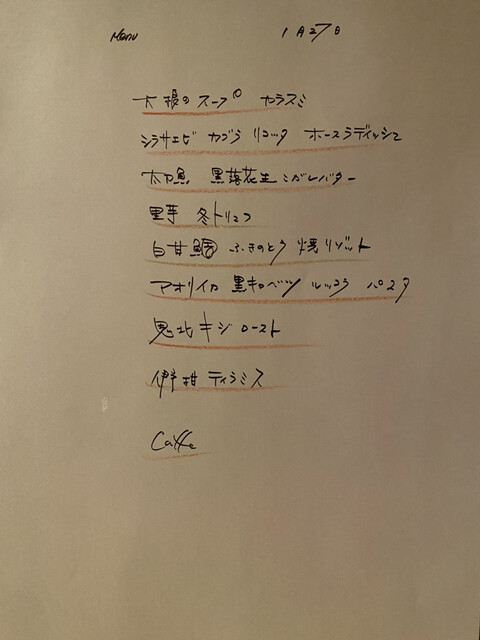 Menu 1月27日
大根のスープ カラスミ
シラサエビ カブラ リコッタ ホースラディッシュ
太刀魚 黒落花生 こがしバター
里芋 冬トリュフ
白甘鯛 ふきのとう 焼リゾット
アオリイカ 黒キャベツ ルッコラ パスタ
鬼北キジ ロースト
伊予柑 ティラミス
Caffe